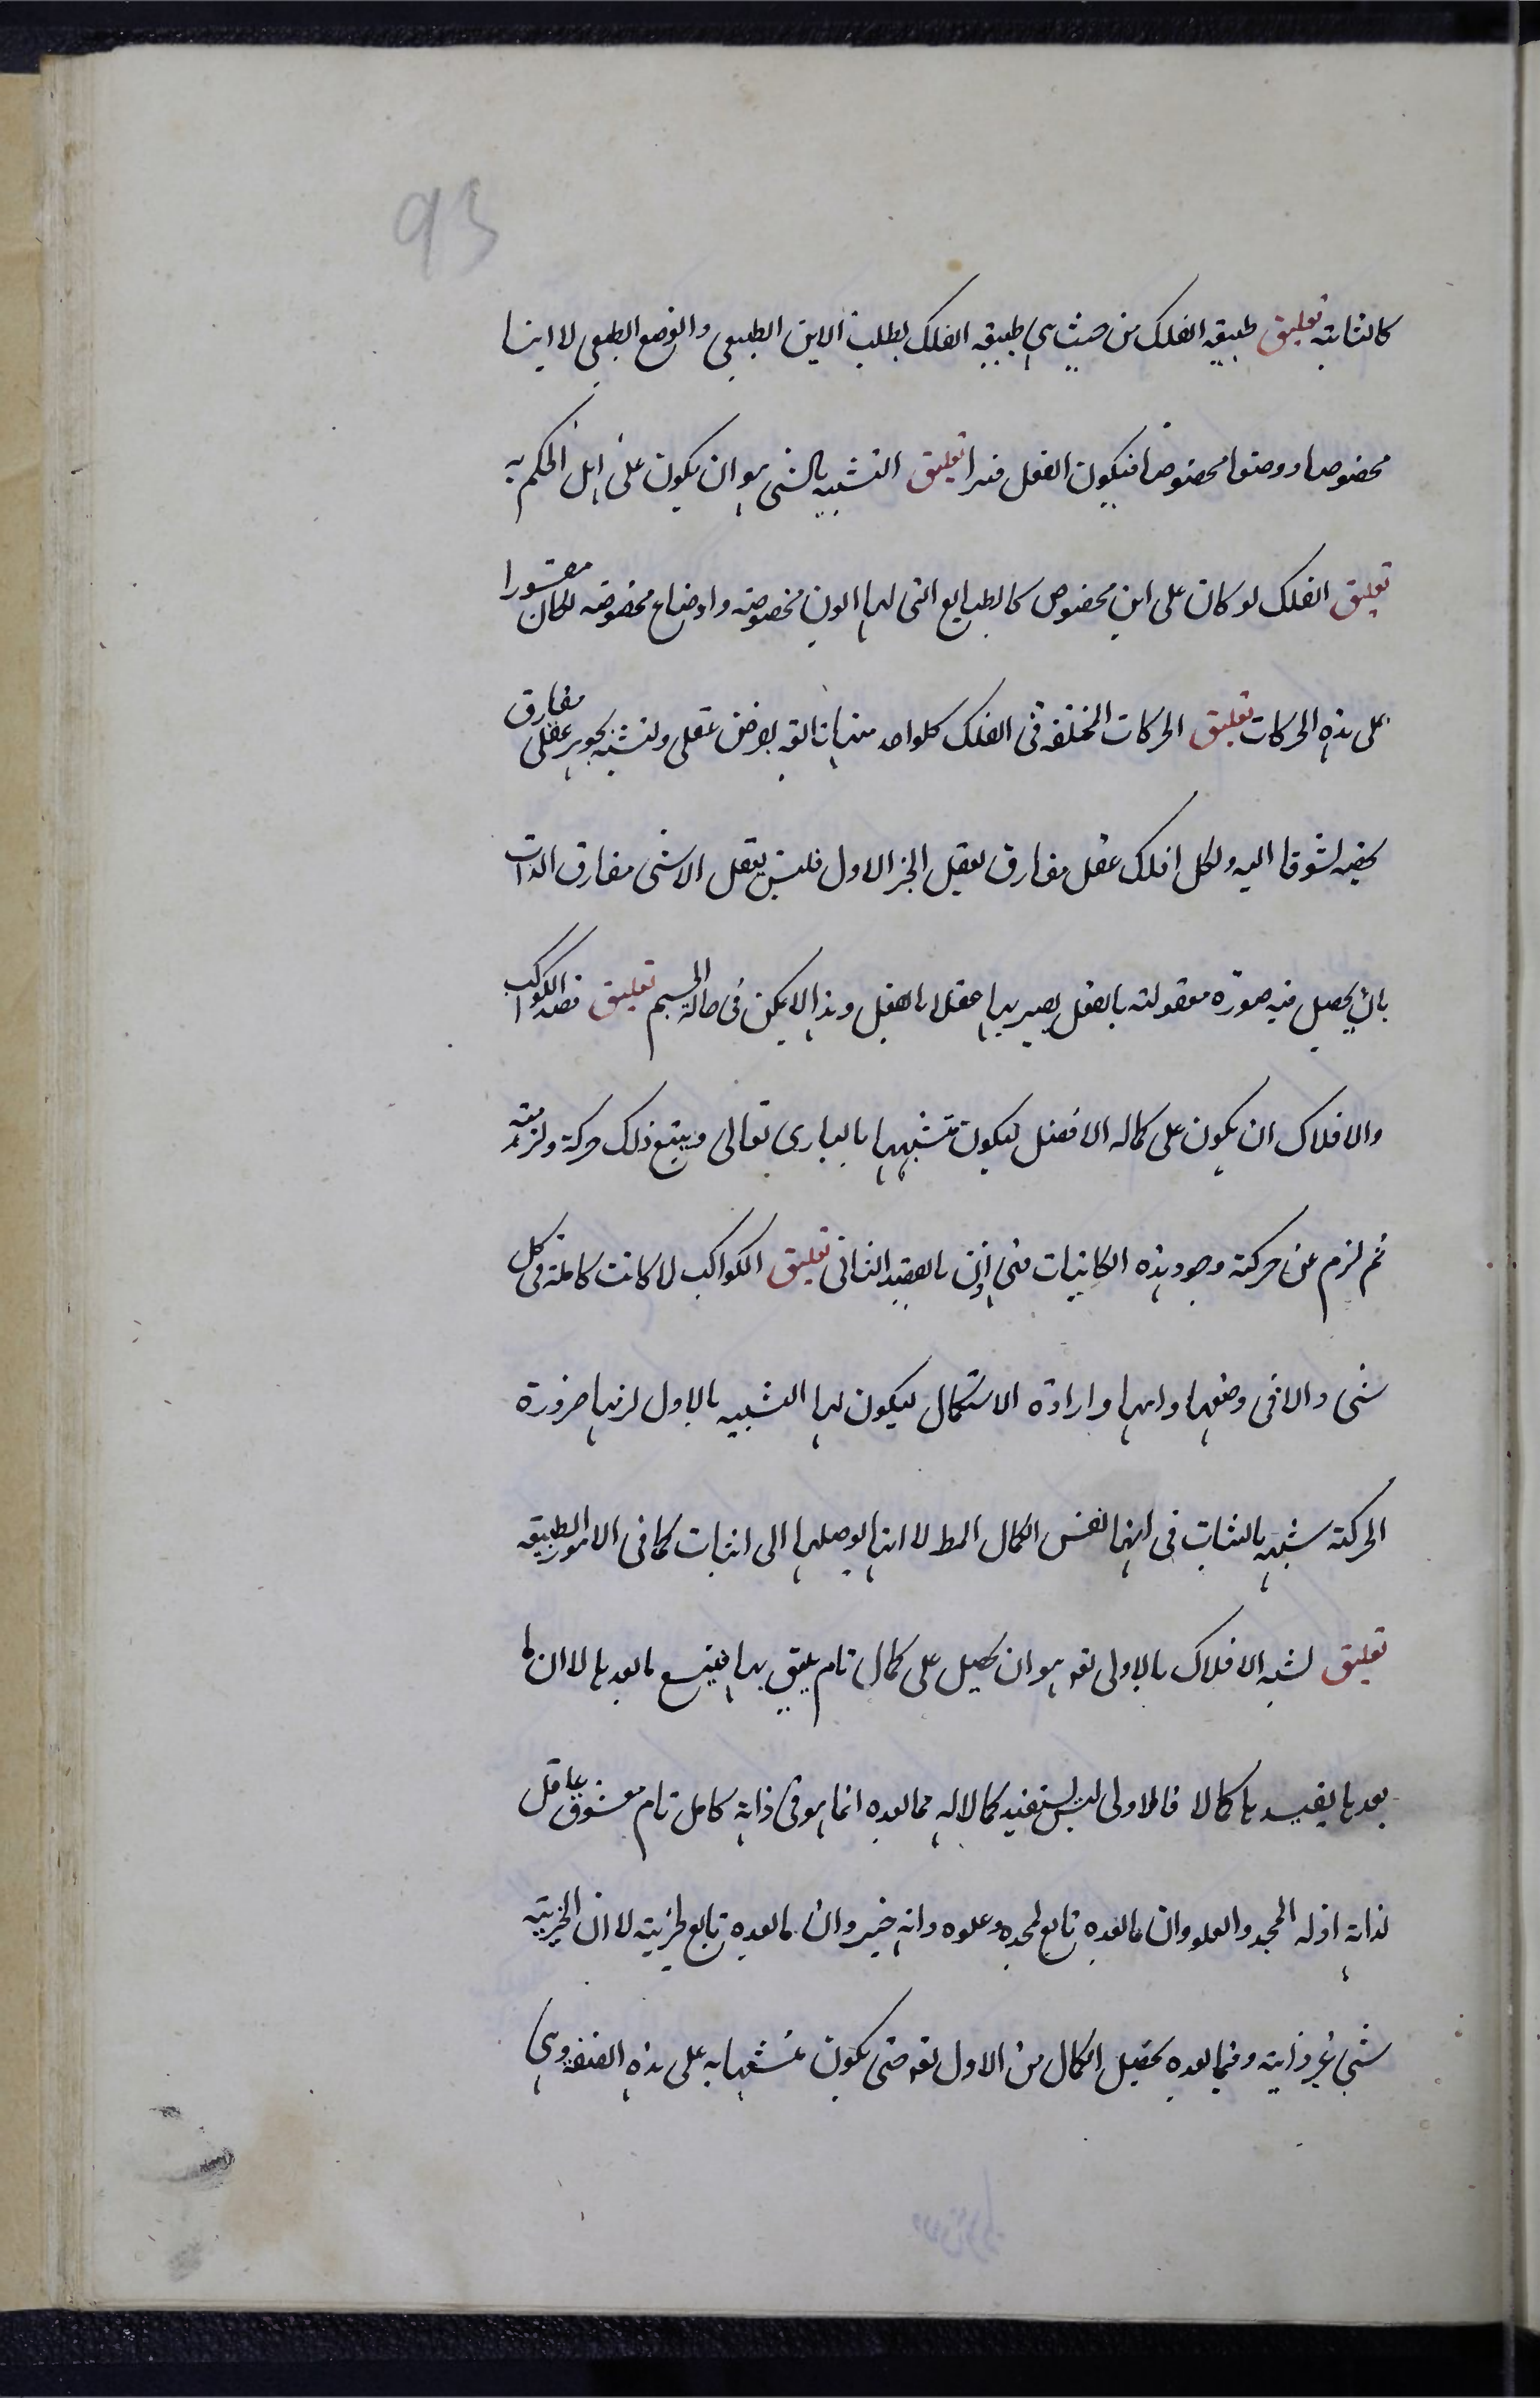 93
كالثابتة تعليق طبيعة الفلك من حيث هى طبيعة الفلك يطلب الاين الطبيعى والوضع الطبيعى لا اينا
مخصوصا ووضعا مخصوصا فيكون النقل قسرا تعليق التشبيه بالشى هو ان يكون على الحكم به
تعليق الفلك لو كان على اين مخصوص كالطبايع التى لها ايون مخصوصة واوضاع مخصوصة لكان مقسورا
على هذه الحركات تعليق الحركات المختلفة فى الفلك كلواحد منها تابعة لغرض عقلى وتشبه بجوهر عقلى مفارق
يخصه تشوقا اليه ولكل فلك عقل مفارق يعقل الخير الاول فليس يعقل الا شى مفارق الذات
بان يحصل فيه صورة معقولة بالفعل يصير بها عقلا بالفعل وهذا لا يمكن فى حالة الجسم تعليق قصد الكواكب
والافلاك ان يكون على كماله الافضل ليكون تشبهها بالبارى تعالى ويتبع ذلك حركة ولزمته
ثم لزم عن حركة وجود هذه الكاينات فهى اذن بالقصد الثانى تعليق الكواكب لما كانت كاملة فى كل
شى والا فى وضعها واينها وارادة الاستكمال ليكون لها التشبيه بالاول لزمها ضرورة
الحركة شبيه بالثبات فى انها نفس الكمال المط لا انها يوصلها الى الثبات كما فى الامور الطبيعية
تعليق تشبه الافلاك بالاول تعه هو ان يحصل على كمال تام يليق بها فيتبع ما بعدها لا ان ما
بعدها يفيدها كمالا فالاول ليس يستفيد كمالا له مما بعده انما هو فى ذاته كامل تام معشوق عاقل
لذاته اذ له المجد والعلو وان ما بعده تابع لمجده وعلوه وانه خير وان ما بعده تابع لخيريته لا ان الخيرية
شى غير ذاته وفيما بعده يحصل الكمال من الاول تعه حتى يكون تشبها به على هذه الصفة وهى